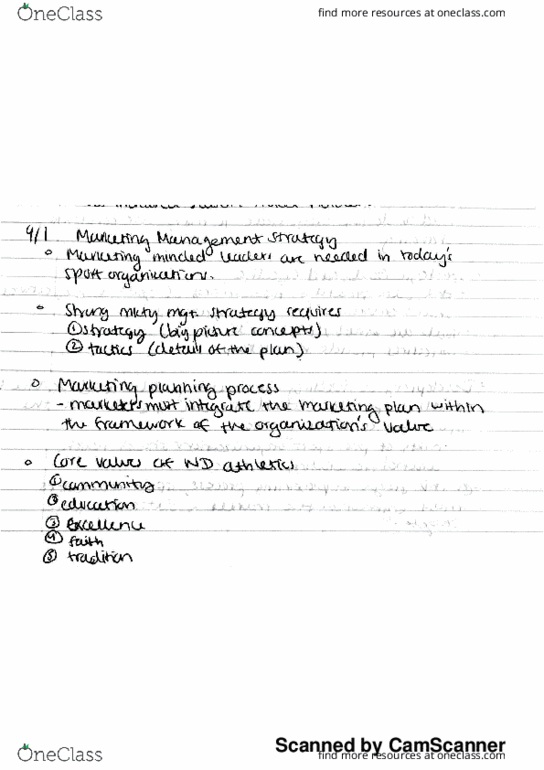 OneClass
find more resources at oneclass.com
9/1 Marketing Management Strategy
Marketing minded leaders are needed in today's
sport organizations.
Strong mktg mgt. strategy requires
① strategy (big picture concepts)
② tactics (details of the plan)
Marketing planning process
- marketers must integrate the marketing plan within
the framework of the organization's value
Core values of ND athletics
① community
② education
③ excellence
④ faith
⑤ tradition
Scanned by CamScanner
OneClass
find more resources at oneclass.com